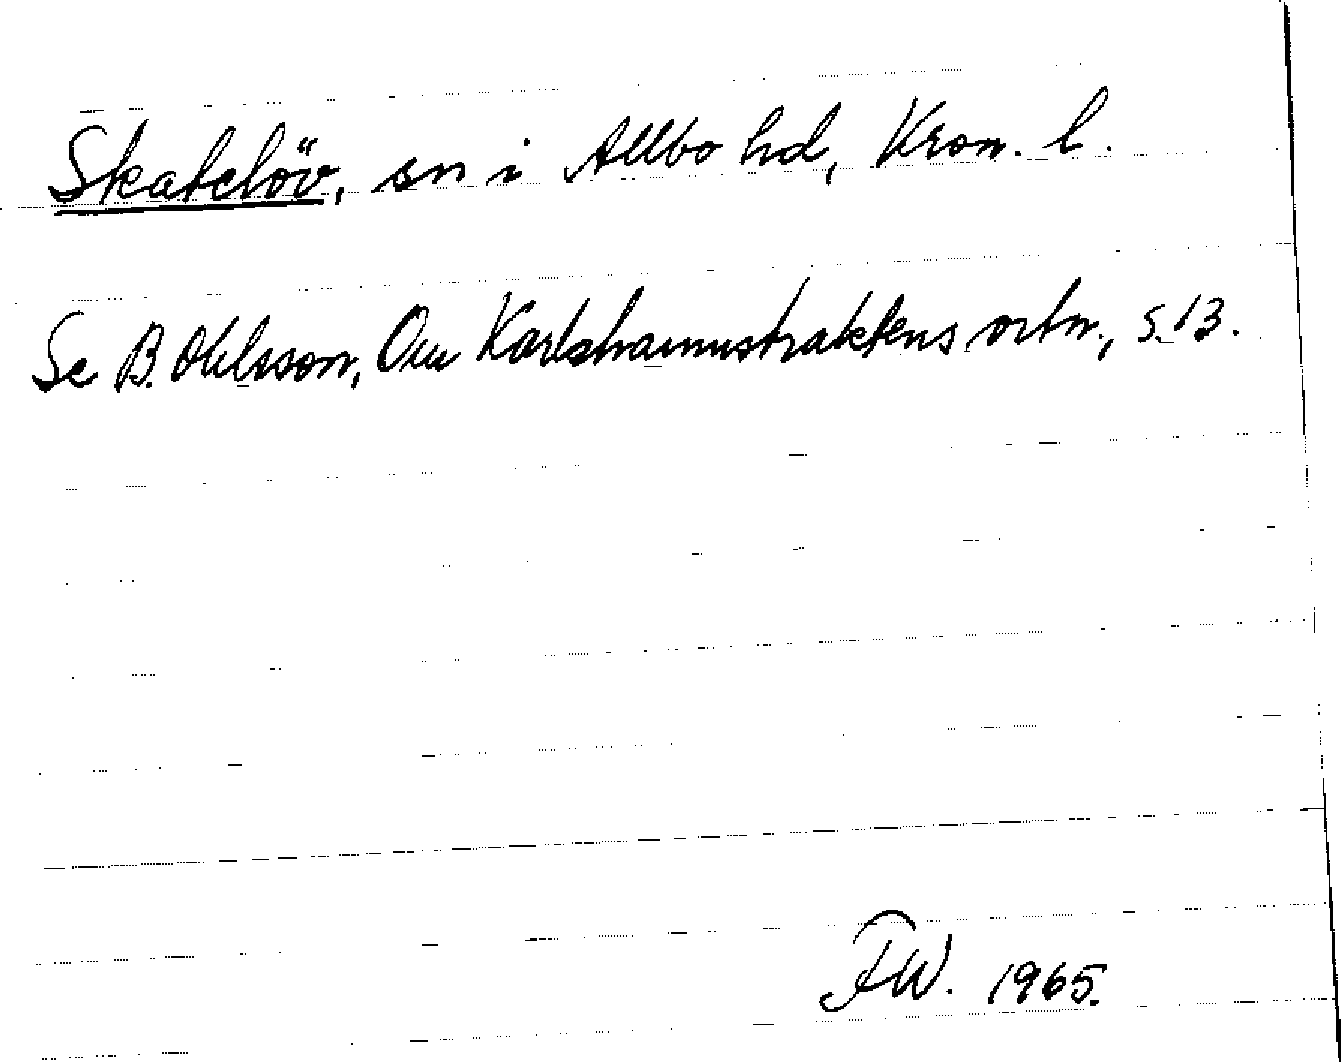 Skatelöv, sn i Allbo hd, Kron. l.
Se B. Ohlsson, Om Karlshamnstraktens ortn., s. 13.
FW. 1965.